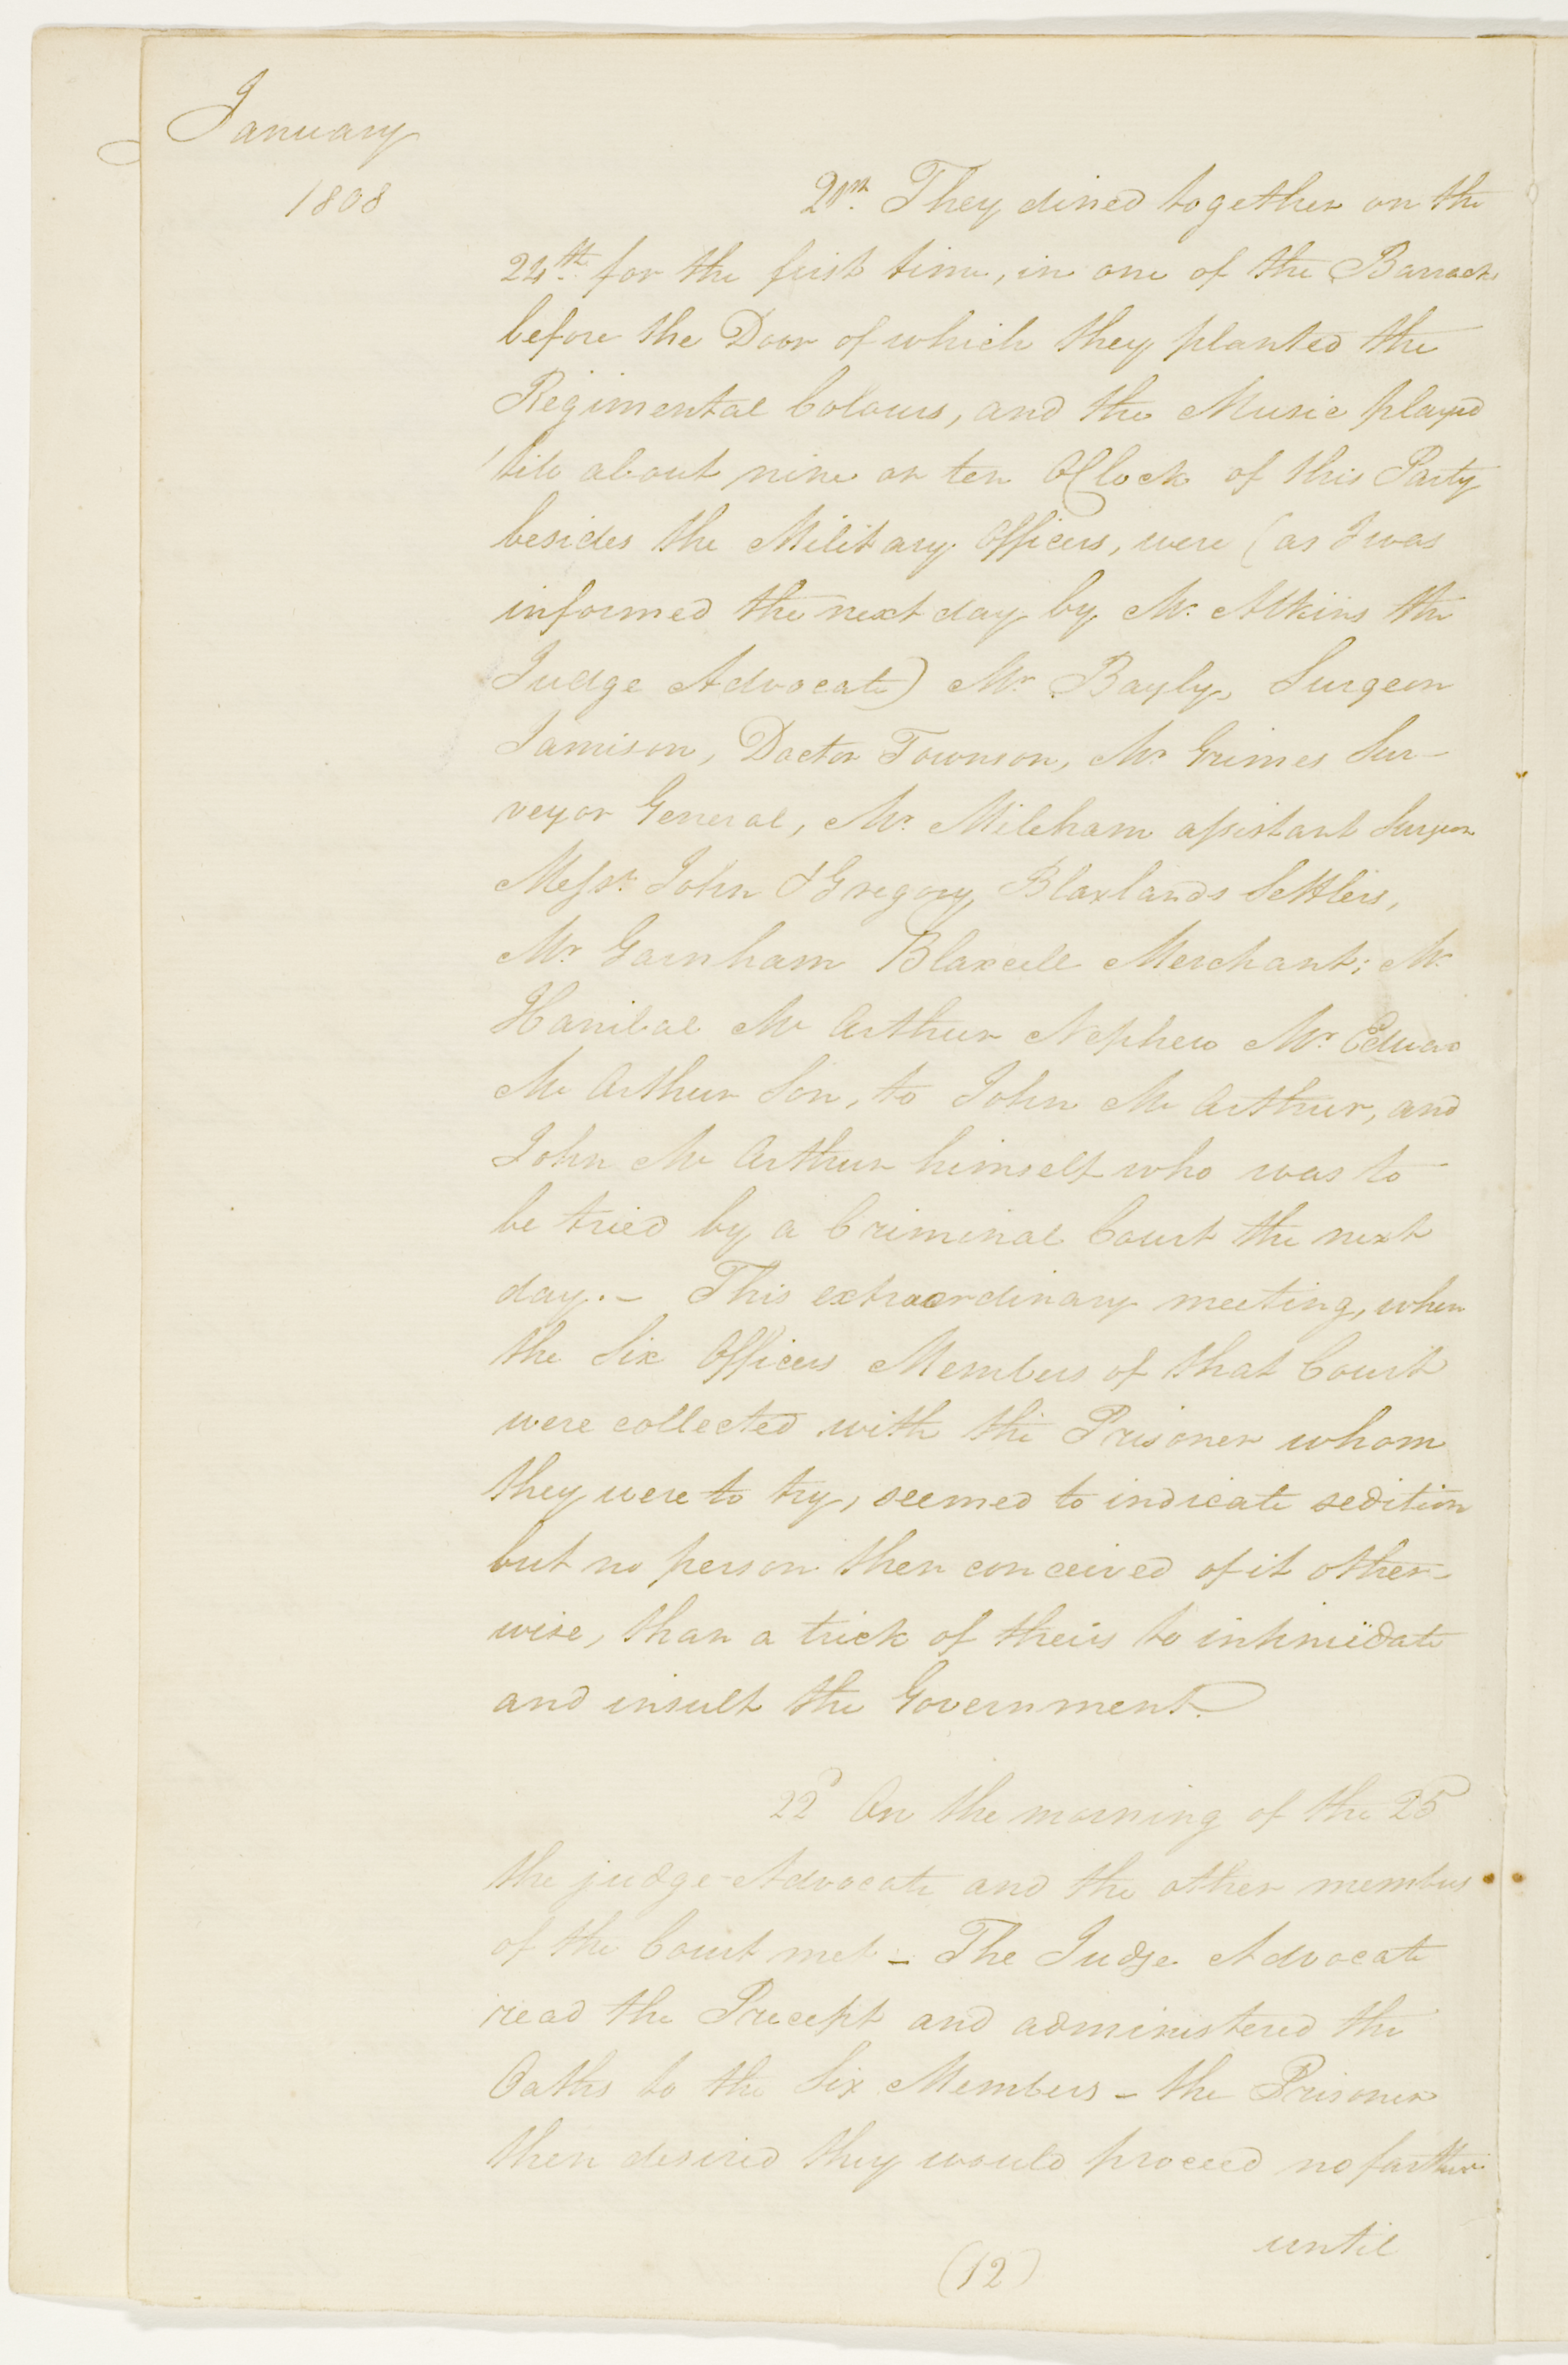 January
1808
21st. They dined together on the
24th. for the first time, in one of the Barracks
before the Door of which they planted the
Regimental Colours, and the Music played
'till about nine or ten OClock of this Party
besides the Military Officers, were (as I was
informed the next day by Mr. Atkins the
Judge Advocate) Mr Bayly, Surgeon
Jamison, Doctor Townson, Mr Grimes Sur-
veyor General, Mr. Mileham assistant Surgeon
Messrs. John & Gregory Blaxlands Settlers,
Mr Garnham Blaxcell Merchant; Mr
Hanibal Mc Arthur Nephew Mr Edward
Mc Arthur Son, to John Mc Arthur, and
John Mc Arthur himself who was to
be tried by a Criminal Court the next
day. – This extraordinary meeting, when
the Six Officers Members of that Court
were collected with the Prisoner whom
they were to try, seemed to indicate sedition
but no person then conceived of it other-
wise, than a trick of theirs to intimidate
and insult the Government.
22d On the morning of the 25
the judge-Advocate and the other members
of the Court met – The Judge Advocate
read the Precept and administered the
Oaths to the Six Members – the Prisoner
then desired they would proceed no farther
until
(12)